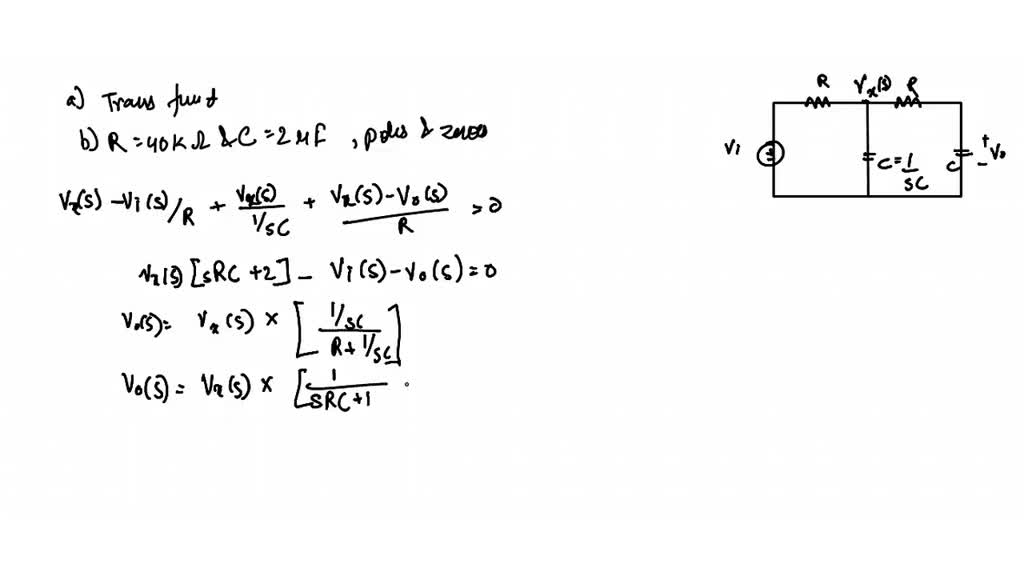 a) Trans funt
b) R = 40K Ω & C = 2 μF , poles & zeros
Vx(s) - Vi(s)/R + Vx(s)/1/sC + Vx(s) - Vo(s)/R = 0
Vx(s) [sRC + 2] - Vi(s) - Vo(s) = 0
Vo(s) = Vx(s) × [1/sC / R + 1/sC]
Vo(s) = Vx(s) × [1 / sRC + 1
R Vx(s) R
Vi
C = 1/SC
C
+ Vo -